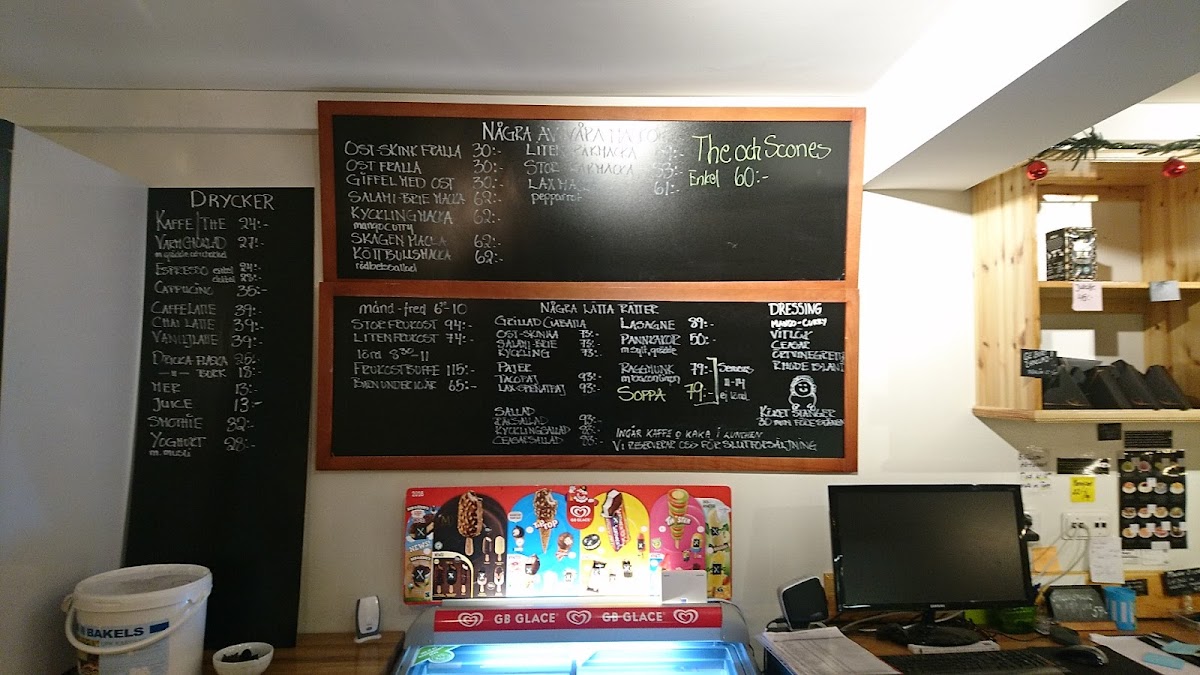 DRYCKER
KAFFE/THE 24:-
VARM CHOKLAD 27:-
ESPRESSO enkel 24:-
dubbel 28:-
CAPPUCINO 35:-
CAFFE LATTE 39:-
CHAI LATTE 39:-
VANILJLATTE 39:-
DRICKA FLASKA 25:-
-"- BURK 18:-
MER 13:-
JUICE 13:-
SMOTHIE 32:-
YOGHURT 28:-
m. musli
NÅGRA AV VÅRA
OST-SKINK FRALLA 30:-
OST FRALLA 30:-
GIFFEL MED OST 30:-
SALAMI-BRIE MACKA 62:-
KYCKLING MACKA 62:-
mangocurry
SKAGEN MACKA 62:-
KÖTTBULLSMACKA 62:-
rödbetssallad
LITEN RÄKMACKA
STOR RÄKMACKA
LAXMA 61:-
pepparrot
The och Scones
Enkel 60:-
månd-fred 6³⁰-10
STOR FRUKOST 94:-
LITEN FRUKOST 74:-
lörd 8³⁰-11
FRUKOSTBUFFE 115:-
BARN UNDER 10 ÅR 65:-
NÅGRA LÄTTA RÄTTER
GRILLAD CIABATTA
OST-SKINKA 73:-
SALAMI-BRIE 73:-
KYCKLING 73:-
PAJER
TACOPAJ 93:-
LAX-SPENATPAJ 93:-
SALLAD
RÄKSALLAD 93:-
KYCKLINGSALLAD 93:-
CEASARSALLAD 93:-
LASAGNE 89:-
PANNKAKOR 50:-
m. sylt, grädde
RAGGMUNK 79:-
m bacon, lingon
SOPPA 79:-
Serveras
11-14
ej lörd.
INGÅR KAFFE O KAKA I LUNCHEN
VI RESERVERAR OSS FÖR SLUTFÖRSÄLJNING
DRESSING
MANGO-CURRY
VITLÖK
CEASAR
ÖRTVINEGRETT
RHODE ISLAND
KÖKET STÄNGER
30 MIN FÖRE STÄNGN
BAKELS
NEWS
TIP TOP
GB GLACE
GB GLACE
GB GLACE